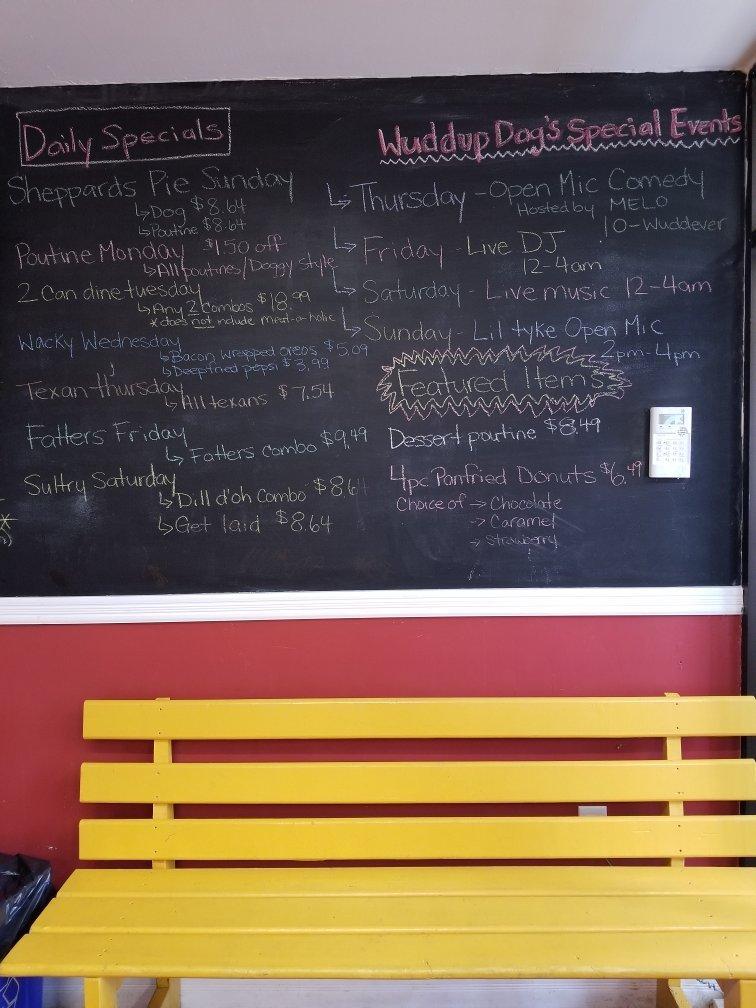 Daily Specials
Sheppards Pie Sunday
↳Dog $8.64
↳Poutine $8.64
Poutine Monday $1.50 off
↳All poutines/Doggy style
2 Can dine tuesday
↳Any 2 Combos $18.99
*does not include meat-a-holic
Wacky Wednesday
↳Bacon wrapped oreos $5.09
↳Deepfried pepsi $3.99
Texan thursday
↳All texans $7.54
Fatters Friday
↳Fatters combo $9.49
Sultry Saturday
↳Dill d'oh Combo $8.64
↳Get laid $8.64
Wuddup Dog's Special Events
↳Thursday - Open Mic Comedy
Hosted by MELO
10-Wuddever
↳Friday - Live DJ
12-4am
↳Saturday - Live music 12-4am
↳Sunday - Lil tyke Open Mic
2pm-4pm
Featured Items
Dessert poutine $8.49
4pc Panfried Donuts $6.49
Choice of → Chocolate
→ Caramel
→ Strawberry